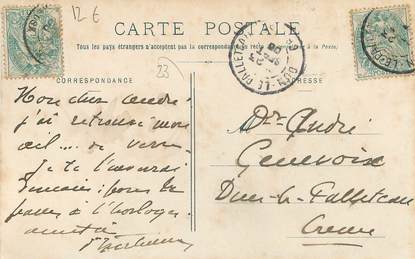 12 €
CARTE POSTALE
Tous les pays étrangers n'acceptent pas la correspondance
CORRESPONDANCE
ADRESSE
DUN-LE-PALLETEAU
23
Mon cher André
j'ai retrouvé mon
œil... de verre
Je te l'enverrai
demain; pour le
à l'horloger
amitié
André
Genevoix
Dun-le-Palleteau
Creuse